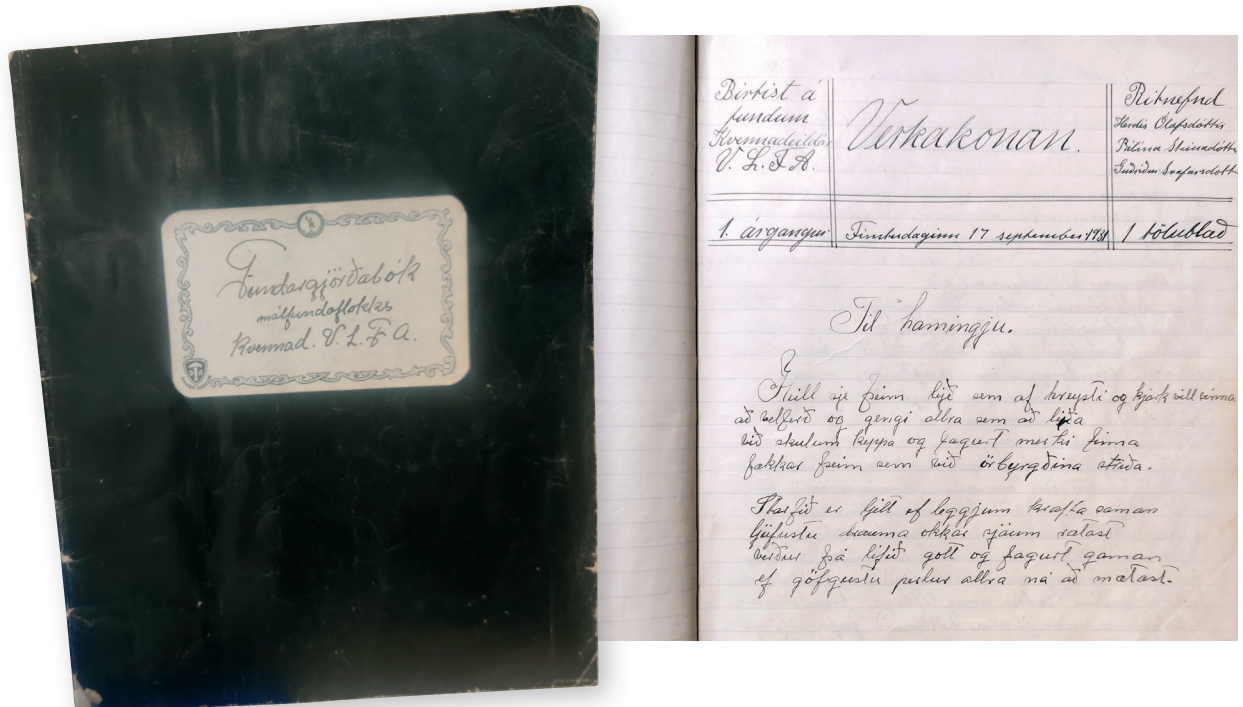 Fundargjörðabók
málfundaflokks
Kvennad. V. L. F. A.
Birtist á
fundum
Kvennadeildar
V. L. F. A.
Verkakonan.
Ritnefnd
Herdís Ólafsdóttir
Pálína Steinadótt
Guðríður Svafarsdótt
1. árgangur
Fimtudaginn 17 september 1931
1 tölublað
Til hamingju.
Heill sje þeim lýð sem af hreysti og kjark vill vinna
að velferð og gengi allra sem að líða
við skulum keppa og fagurt merki finna
fækkar þeim sem við örbyrgðina stríða.
Starfið er ljett ef leggjum krafta saman
ljúfustu drauma okkar sjáum rætast
verður þá lífið gott og fagurt gaman
ef göfgustu perlur allra ná að mætast.